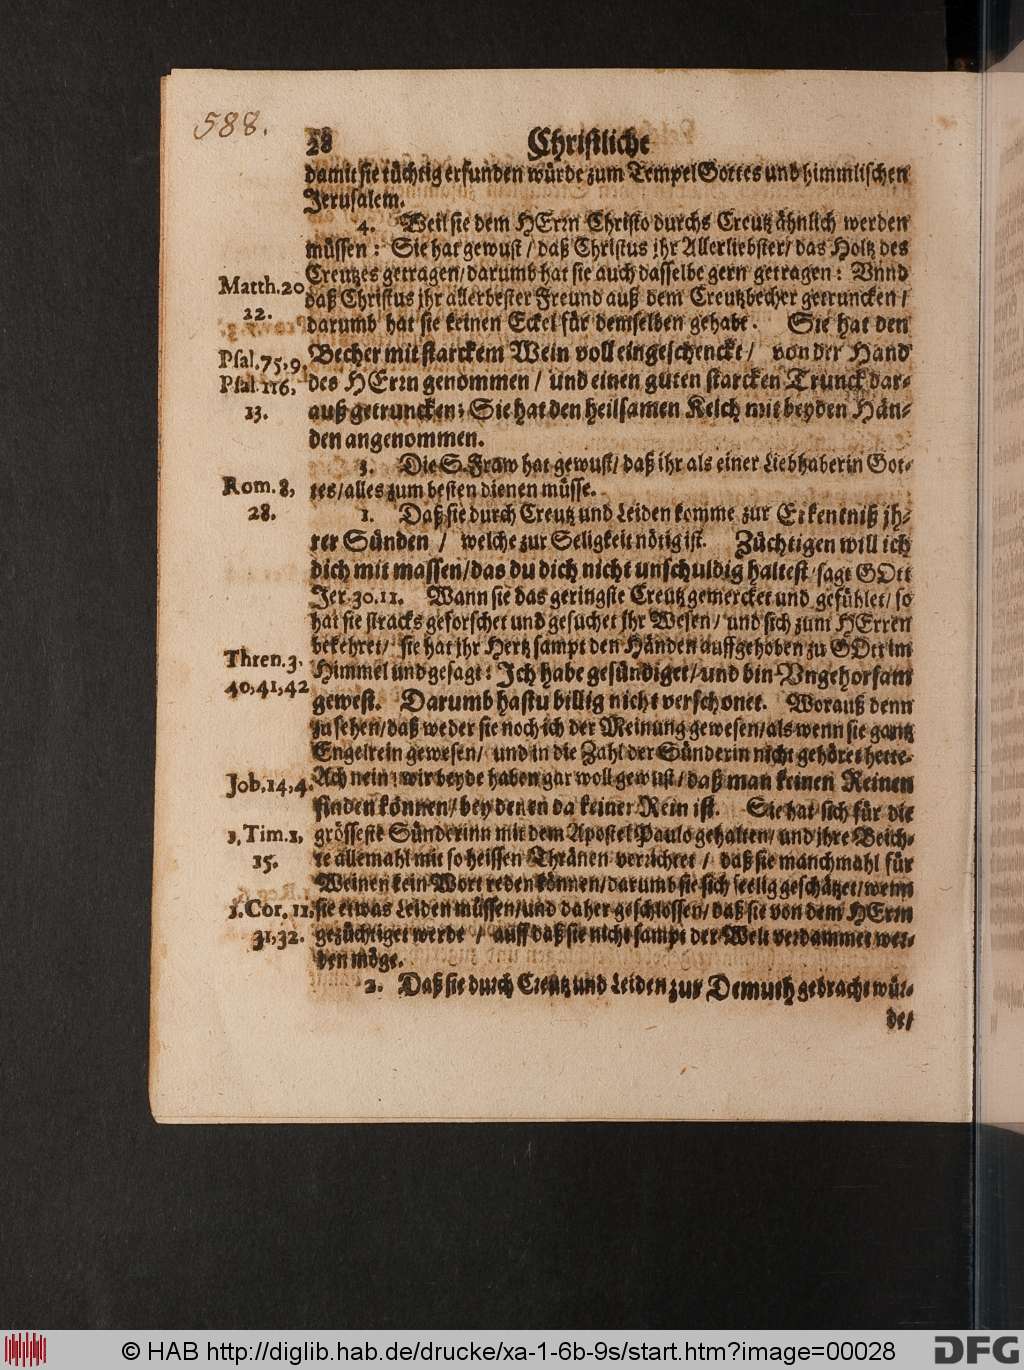 588.
28 Christliche
damit sie tüchtig erfunden würde zum Tempel Gottes und himmlischen
Jerusalem.
4. Weil sie dem HErrn Christo durchs Creutz ähnlich werden
müssen: Sie hat gewust / daß Christus jhr Allerliebster / das Holtz des
Creutzes getragen / darumb hat sie auch dasselbe gern getragen: Vnnd
Matth. 20
daß Christus jhr allerbester Freund auß dem Creutzbecher getruncken /
22.
darumb hat sie keinen Eckel für demselben gehabt. Sie hat den
Psal. 75, 9.
Becher mit starckem Wein voll eingeschenckt / von der Hand
Psal. 116,
des HErrn genommen / und einen guten starcken Trunck dar-
13.
auß getruncken; Sie hat den heilsamen Kelch mit beyden Hän-
den angenommen.
5. Die S. Fraw hat gewust / daß ihr als einer Liebhaberin Got-
Rom. 8,
tes / alles zum besten dienen müsse.
28.
1. Daß sie durch Creutz und Leiden komme zur Erkentniß jh-
rer Sünden / welche zur Seligkeit nötig ist. Züchtigen will ich
dich mit massen / das du dich nicht unschuldig haltest / sagt GOtt
Jer. 30. 11. Wann sie das geringste Creutz gemercket und gefühlet / so
hat sie stracks geforschet und gesuchet jhr Wesen / und sich zum HErren
bekehret / sie hat jhr Hertz sampt den Händen auffgehoben zu GOtt im
Thren. 3.
Himmel und gesagt: Ich habe gesündiget / und bin Vngehorsam
40, 41, 42
gewest. Darumb hastu billig nicht verschonet. Worauß denn
zu sehen / daß weder sie noch ich der Meinung gewesen / als wenn sie gantz
Engelrein gewesen / und in die Zahl der Sünderin nicht gehöret hette.
Job. 14, 4.
Ach nein: wir beyde haben gar woll gewust / daß man keinen Reinen
finden können / bey denen da keiner Rein ist. Sie hat sich für die
1. Tim. 1,
grösseste Sünderinn mit dem Apostel Paulo gehalten / und ihre Beich-
15.
te allemahl mit so heissen Thränen verrichtet / daß sie manchmahl für
Weinen kein Wort reden können / darumb sie sich seelig geschätzet / wenn
1. Cor. 11.
sie etwas Leiden müssen / und daher geschlossen / daß sie von dem HErrn
31, 32.
gezüchtiget werde / auff daß sie nicht sampt der Welt verdammet wer-
den möge.
2. Daß sie durch Creutz und Leiden zur Demuth gebracht wür-
de /
© HAB http://diglib.hab.de/drucke/xa-1-6b-9s/start.htm?image=00028
DFG